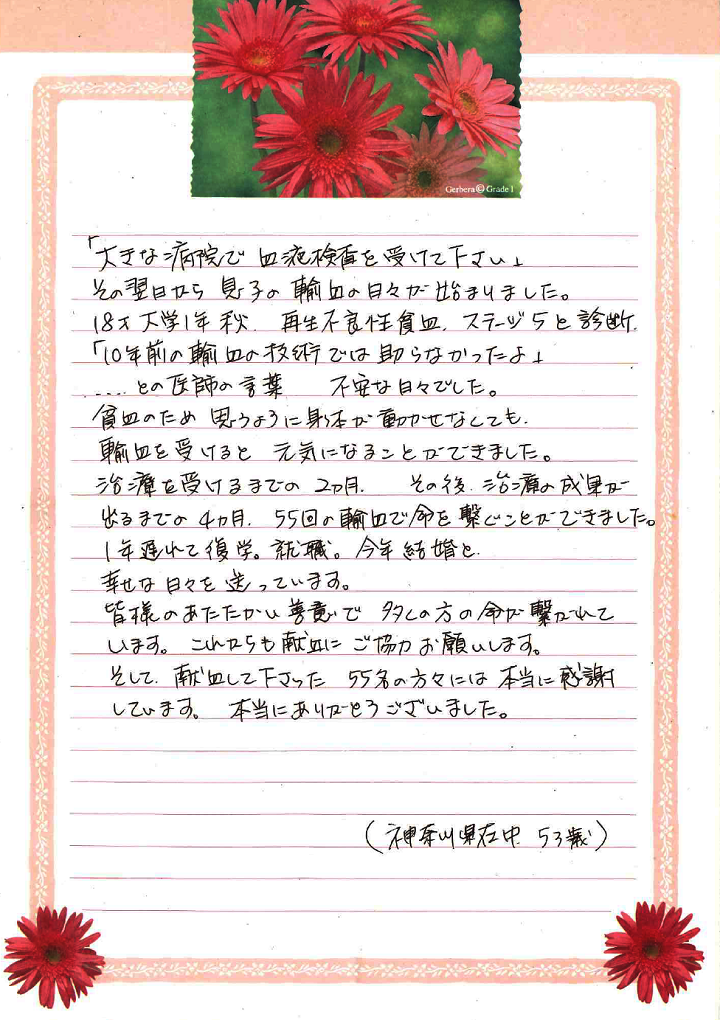 Gerbera © Grade 1
「大きな病院で 血液検査を受けて下さい」
その翌日から 息子の輸血の日々が始まりました。
18才 大学1年 秋. 再生不良性貧血. ステージ5と診断.
「10年前の輸血の技術では助らなかったよ」
.....との医師の言葉 不安な日々でした。
貧血のため 思うように身体が動かせなくても.
輸血を受けると 元気になることができました。
治療を受けるまでの 2ヵ月. その後. 治療の成果が
出るまでの 4ヵ月. 55回の輸血で命を繋ぐことができました。
1年遅れて復学。就職。今年結婚と.
幸せな日々を送っています。
皆様のあたたかい善意で 多くの方の命が繋がれて
います。これからも献血に ご協力お願いします。
そして. 献血して下さった 55名の方々には 本当に感謝
しています。 本当にありがとうございました。
(神奈川県在中 53歳)